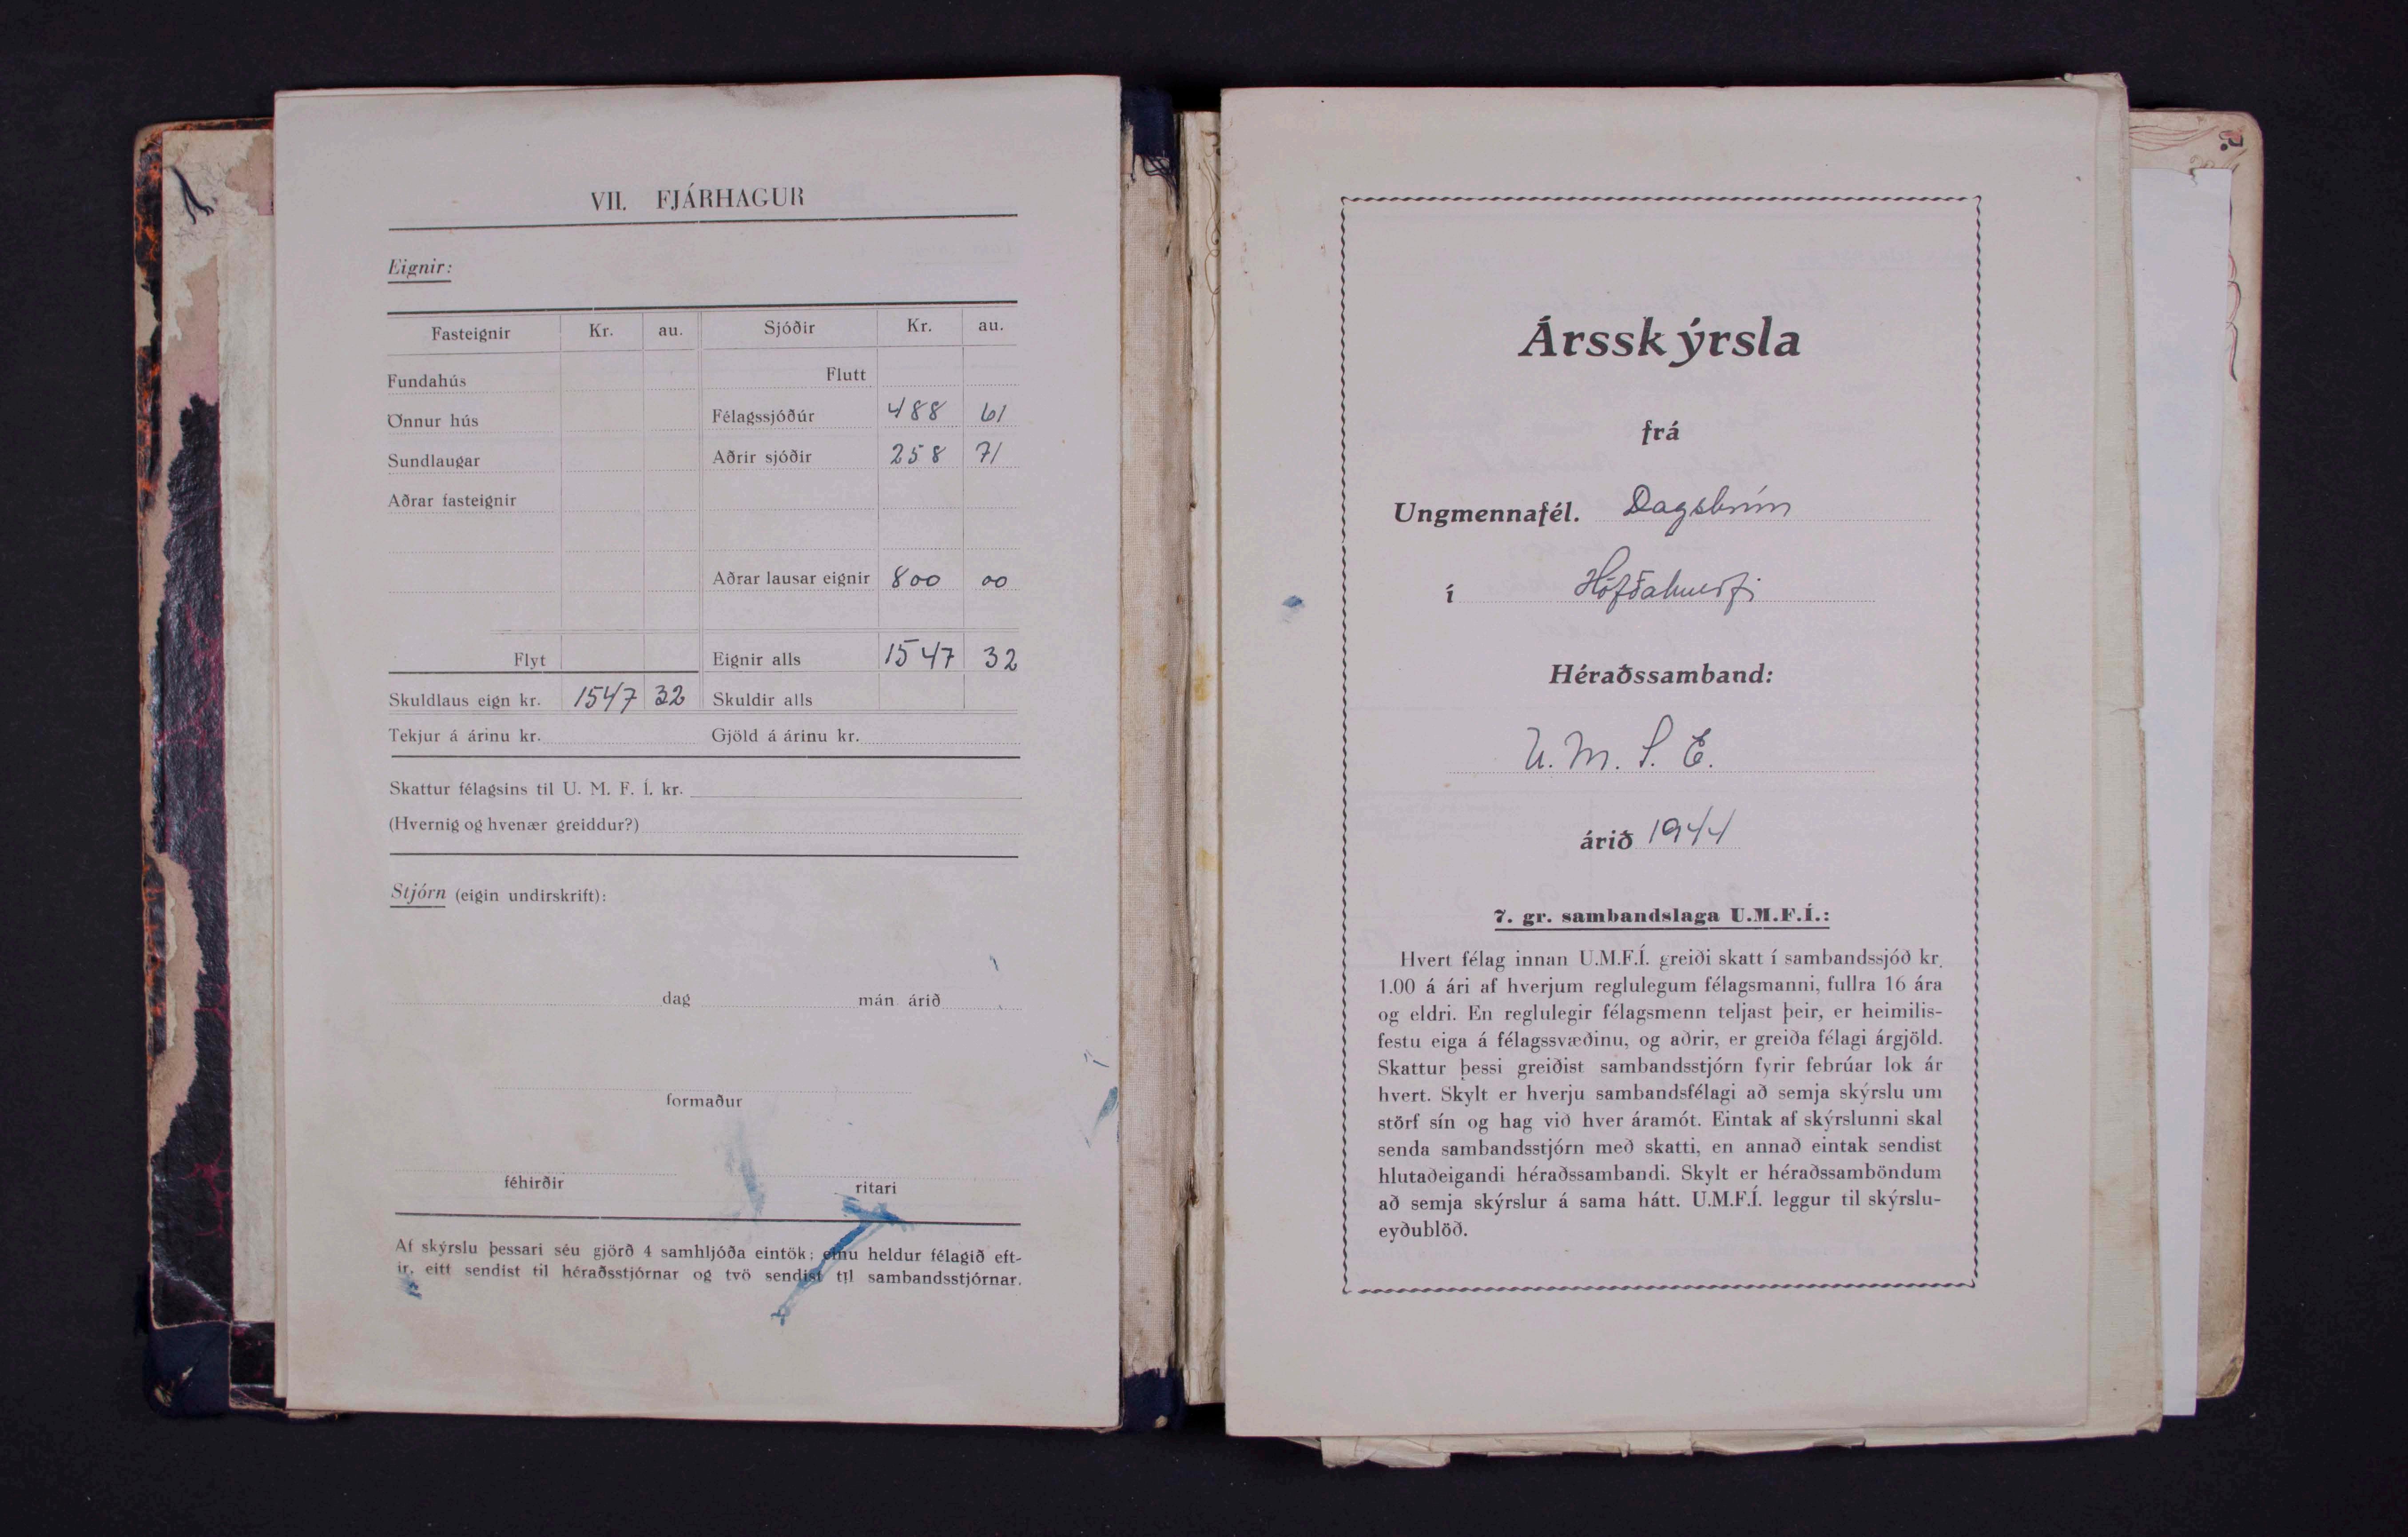 VII. FJÁRHAGUR
Eignir:
Fasteignir Kr. au. Sjóðir Kr. au.
Fundahús Flutt
Önnur hús Félagssjóður 488 61
Sundlaugar Aðrir sjóðir 258 71
Aðrar fasteignir
Aðrar lausar eignir 800 00
Flyt Eignir alls 1547 32
Skuldlaus eign kr. 1547 32 Skuldir alls
Tekjur á árinu kr. Gjöld á árinu kr.
Skattur félagsins til U. M. F. Í. kr.
(Hvernig og hvenær greiddur?)
Stjórn (eigin undirskrift):
dag mán. árið
formaður
féhirðir ritari
Af skýrslu þessari séu gjörð 4 samhljóða eintök; einu heldur félagið eft-
ir, eitt sendist til héraðsstjórnar og tvö sendist til sambandsstjórnar.
Ársskýrsla
frá
Ungmennafél. Dagsbrún
í Höfðahverfi
Héraðssamband:
U. M. S. E.
árið 1944
7. gr. sambandslaga U.M.F.Í.:
Hvert félag innan U.M.F.Í. greiði skatt í sambandssjóð kr.
1.00 á ári af hverjum reglulegum félagsmanni, fullra 16 ára
og eldri. En reglulegir félagsmenn teljast þeir, er heimilis-
festu eiga á félagssvæðinu, og aðrir, er greiða félagi árgjöld.
Skattur þessi greiðist sambandsstjórn fyrir febrúar lok ár
hvert. Skylt er hverju sambandsfélagi að semja skýrslu um
störf sín og hag við hver áramót. Eintak af skýrslunni skal
senda sambandsstjórn með skatti, en annað eintak sendist
hlutaðeigandi héraðssambandi. Skylt er héraðssamböndum
að semja skýrslur á sama hátt. U.M.F.Í. leggur til skýrslu-
eyðublöð.